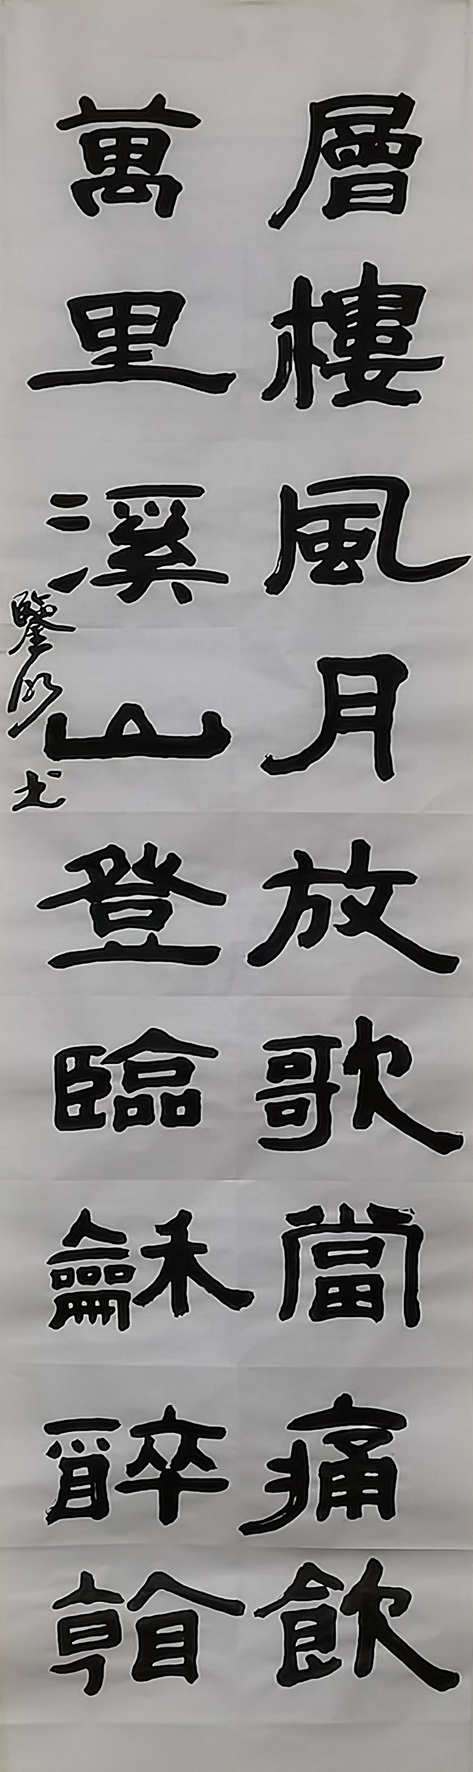 層樓風月放歌當痛飲
萬里溪山登臨龢醉翰
鑒明书